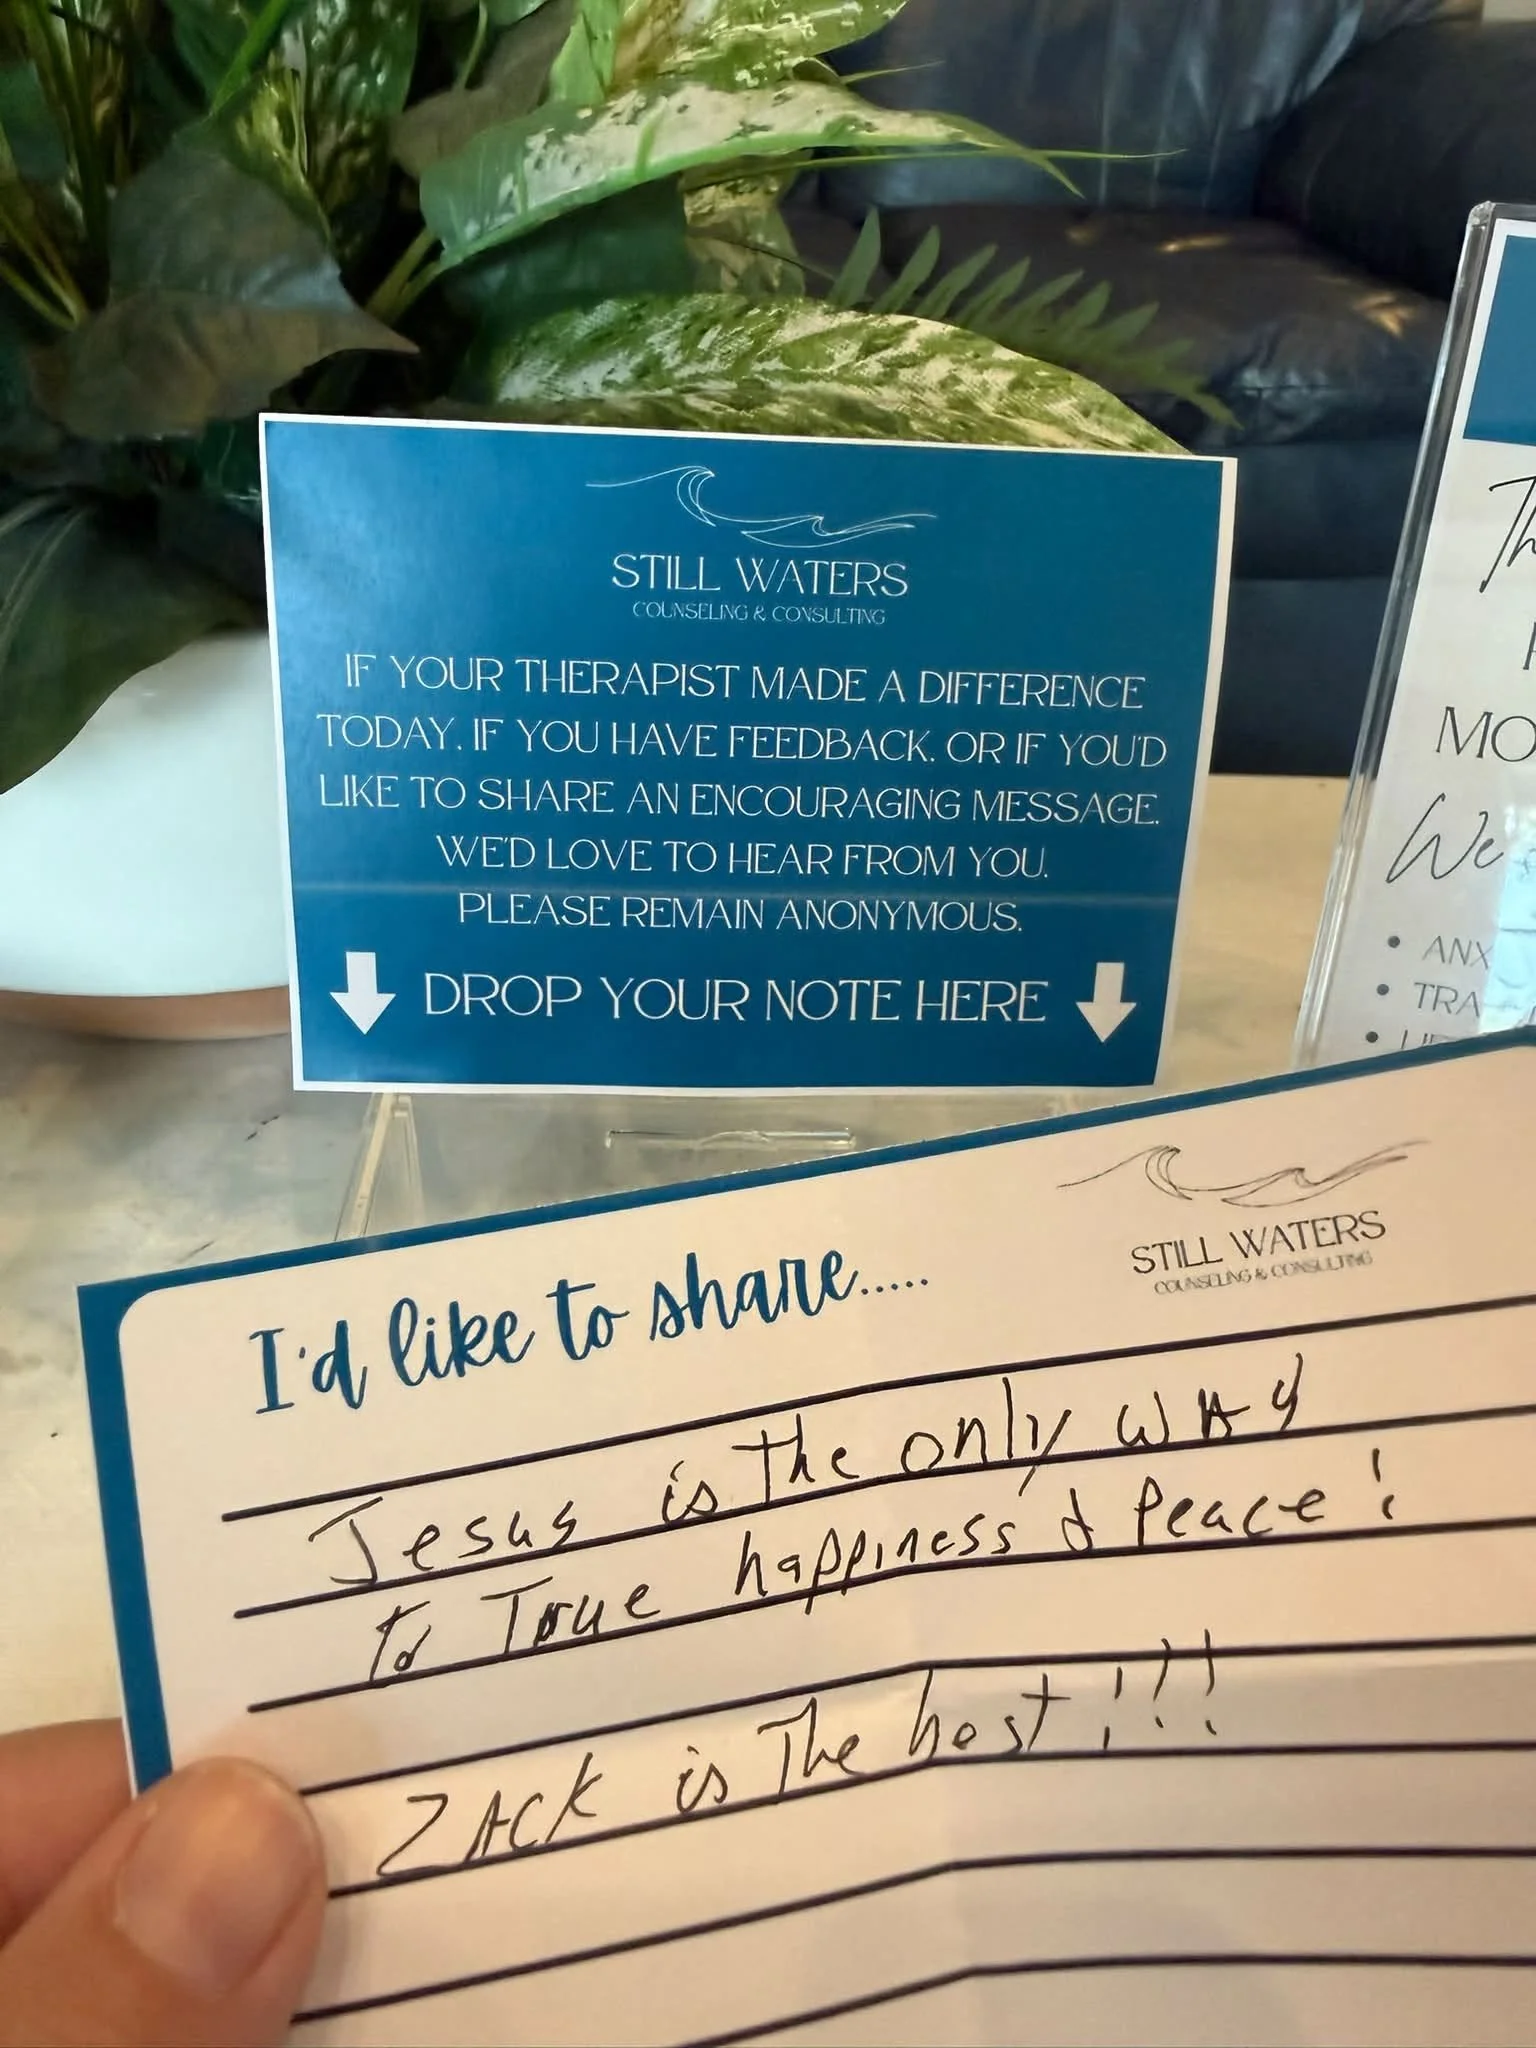 STILL WATERS
COUNSELING & CONSULTING
IF YOUR THERAPIST MADE A DIFFERENCE
TODAY, IF YOU HAVE FEEDBACK, OR IF YOU'D
LIKE TO SHARE AN ENCOURAGING MESSAGE,
WE'D LOVE TO HEAR FROM YOU.
PLEASE REMAIN ANONYMOUS.
DROP YOUR NOTE HERE
Th
MO
We
• ANX
• TRA
I'd like to share.....
STILL WATERS
COUNSELING & CONSULTING
Jesus is The only WAY
To True happiness & Peace!
ZACK is The best!!!